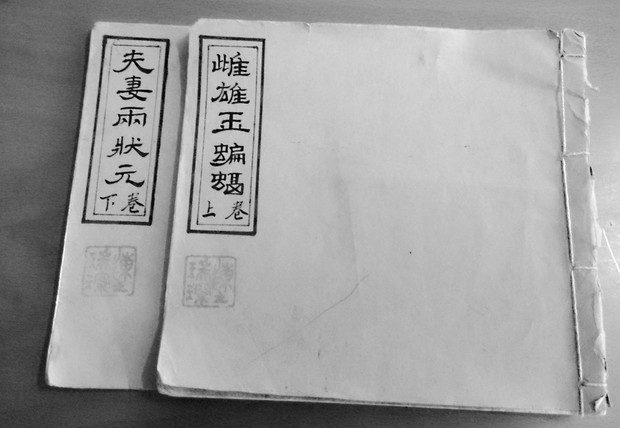 雌雄玉蝙蝠
上卷
夫妻兩狀元
下卷